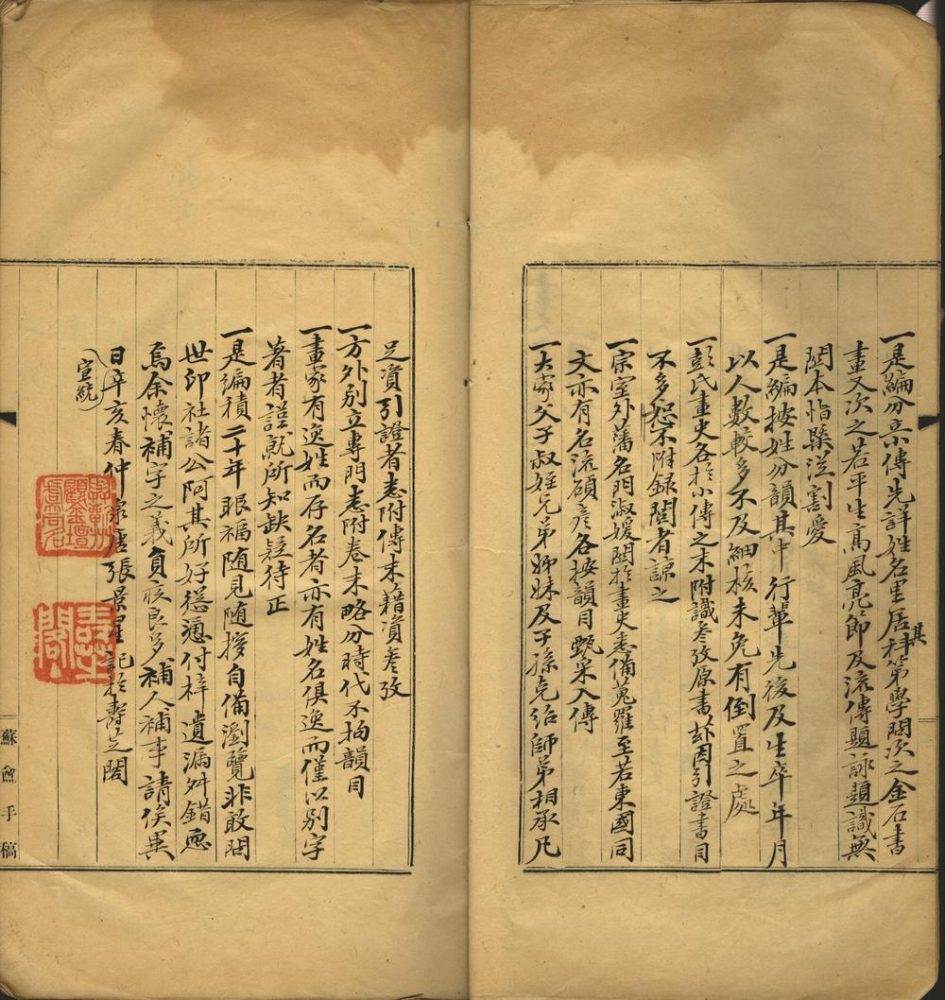 一是編分系小傳先詳姓名里居科第其學問次之金石書
畫又次之若平生高風亮節及流傳題詠題識無
關本恉槩從割愛
一是編按姓分韻其中行輩先後及生卒年月
以人數較多不及細核未免有倒置之處
一彭氏畫史各於小傳之末附識參攷原書玆因引證書目
不多恕不附錄閱者諒之
一宗室外藩名門淑媛關於畫史悉備蒐羅至若東國同
文亦有名流碩彥各按韻目甄采入傳
一大家父子叔姪兄弟姊妹及子孫克紹師弟相承凡
足資引證者悉附傳末藉資參攷
一方外別立專門悉附卷末略分時代不拘韻目
一畫家有逸姓而存名者亦有姓名俱逸而僅以別字
著者謹就所知缺疑待正
一是編積二十年眼福隨見隨採自備瀏覽非敢問
世印社諸公阿其所好慫慂付梓遺漏舛錯恧
焉余懷補字之義負疚良多補人補事請俟異
日宣統辛亥春仲泉唐張景星記於壽芝閣
蘇盦手稿